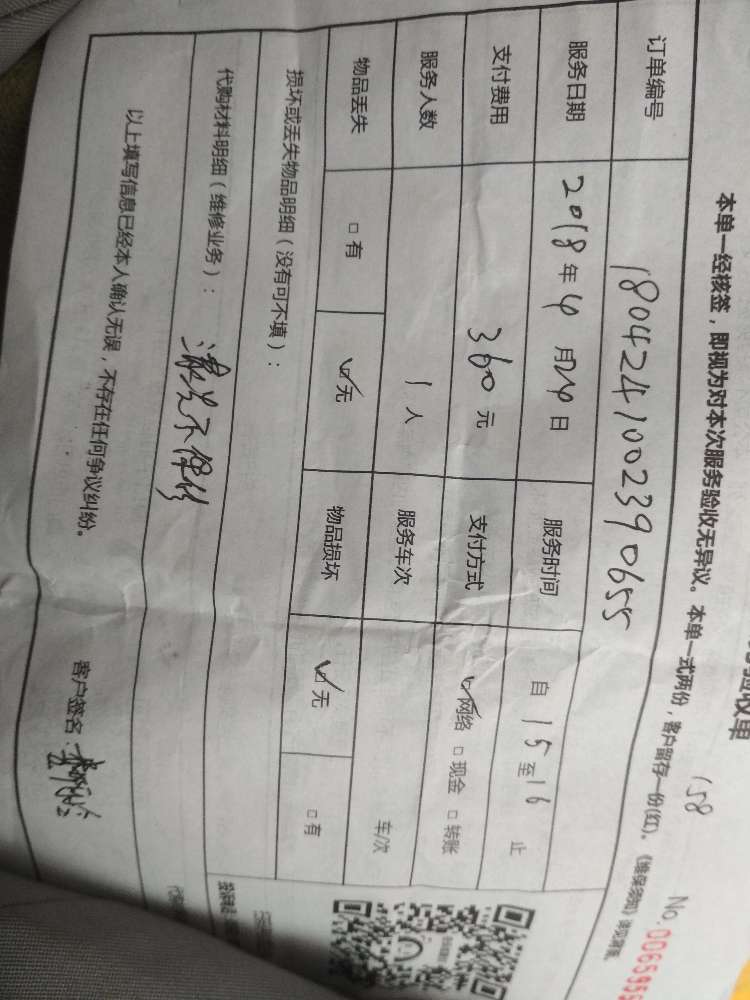 验收单
158 No.0065955
本单一经核签，即视为对本次服务验收无异议。本单一式两份，客户留存一份(红)。
订单编号 1804241002390655
服务日期 2018年4月24日 服务时间 自15至16止
支付费用 360元 支付方式 ☑网络 □现金 □转账
服务人数 1人 服务车次 车/次
物品丢失 □有 ☑无 物品损坏 ☑无 □有
损坏或丢失物品明细（没有可不填）：
代购材料明细（维修业务）：
以上填写信息已经本人确认无误，不存在任何争议纠纷。
客户签名：